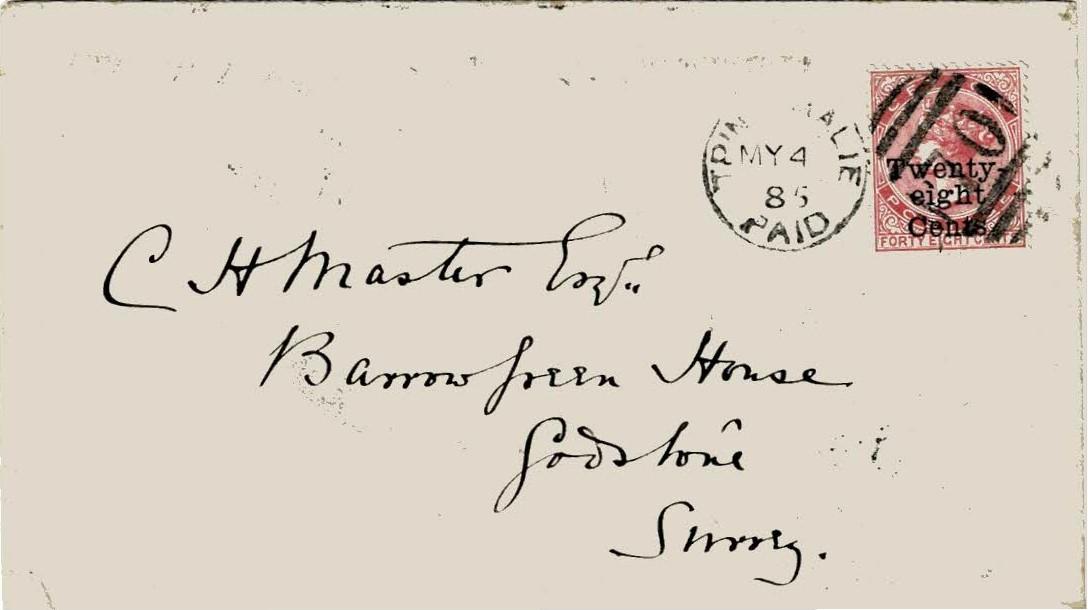 MY 4
85
PAID
Twenty
eight
Cents
FORTY EIGHT CENTS
C H Master Esqr
Barrow Green House
Godstone
Surrey.